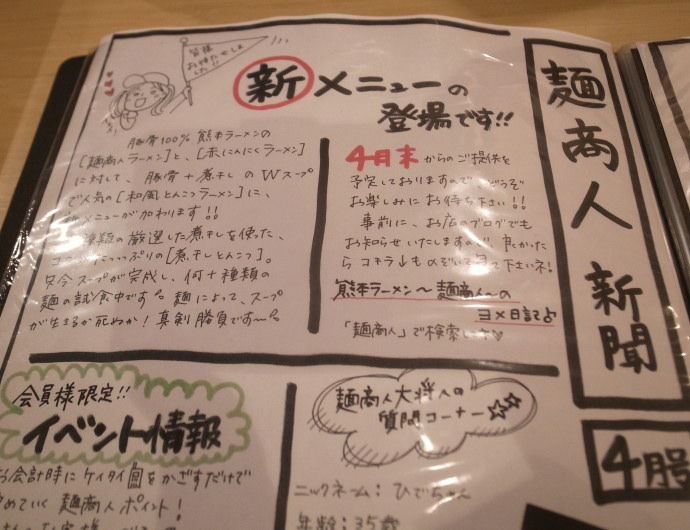 麺商人新聞
4月号
皆様
お待たせしま
した!!
新メニューの
登場です!!
豚骨100% 熊本ラーメンの
[麺商人ラーメン]と、[赤にんにくラーメン]
に対して、豚骨+煮干しのWスープ
で人気の[和風とんこつラーメン]に、
メニューが加わります!!
種類の厳選した煮干しを使った、
っぷりの[煮干しとんこつ]。
只今スープが完成し、何十種類の
麺の試食中です 麺によって、スープ
が生きるか死ぬか! 真剣勝負です〜
4月末からのご提供を
予定しておりますので、どうぞ
お楽しみにお待ち下さい!!
事前に、お店のブログでも
お知らせいたしますので、良かった
らコチラ↓ものぞいて見て下さいネ!
熊本ラーメン〜麺商人〜の
ヨメ日記♪
「麺商人」で検索し
会員様限定!!
イベント情報
お会計時にケイタイをかざすだけで
めていく 麺商人ポイント!
麺商人大将人の
質問コーナー☆☆
ニックネーム:ひでちゃん
年齢:35歳